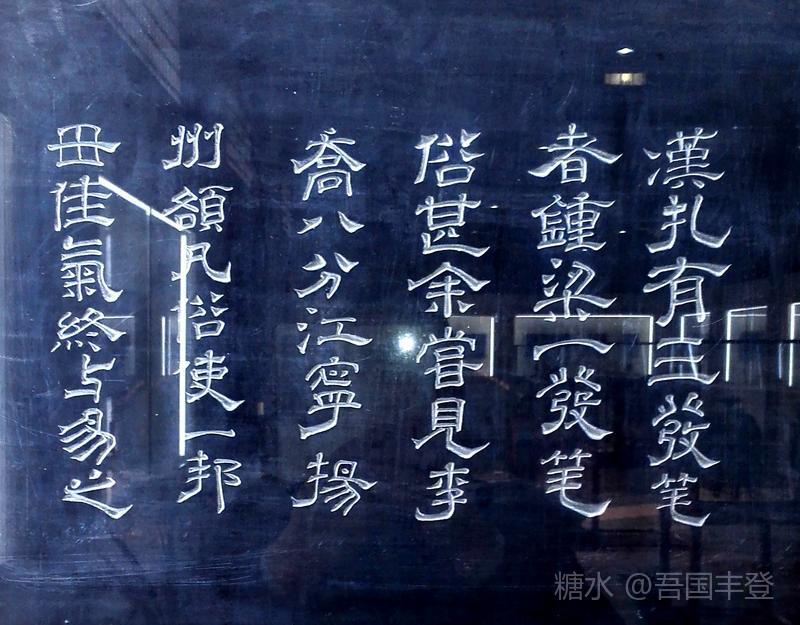 漢扎有三發笔
者鍾梁一發笔
俗甚余嘗見李
喬八分江寧揚
州額凡俗使一邦
毌佳氣終与易之
糖水 @吾国丰登